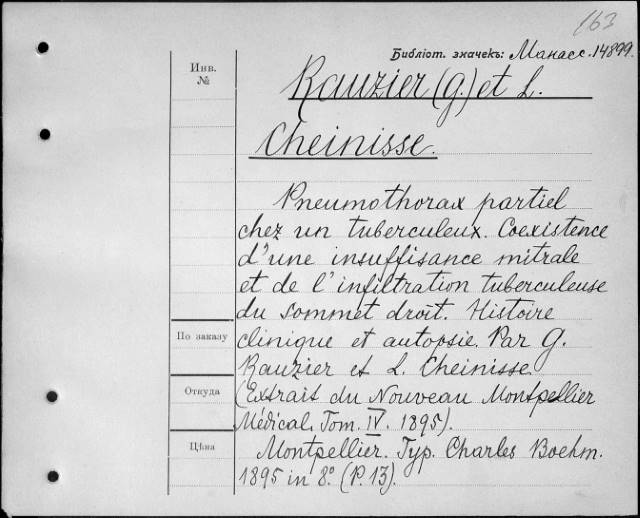 163
Библіот. значекъ: Манасс. 14899.
Инв.
№
Rauzier (G.) et L.
Cheinisse.
Pneumothorax partiel
chez un tuberculeux. Coexistence
d'une insuffisance mitrale
et de l'infiltration tuberculeuse
du sommet droit. Histoire
По заказу
clinique et autopsie. Par G.
Rauzier et L. Cheinisse.
Откуда
(Extrait du Nouveau Montpellier
Médical, Tom. IV. 1895).
Цѣна
Montpellier. Typ. Charles Boehm.
1895 in 8º. (P. 13).